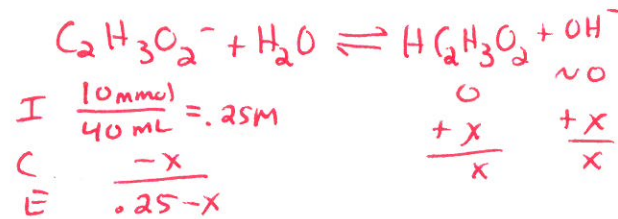 C₂H₃O₂⁻ + H₂O ⇌ HC₂H₃O₂ + OH⁻
I 10mmol/40 mL = .25M 0 ~0
C -x +x +x
E .25-x x x